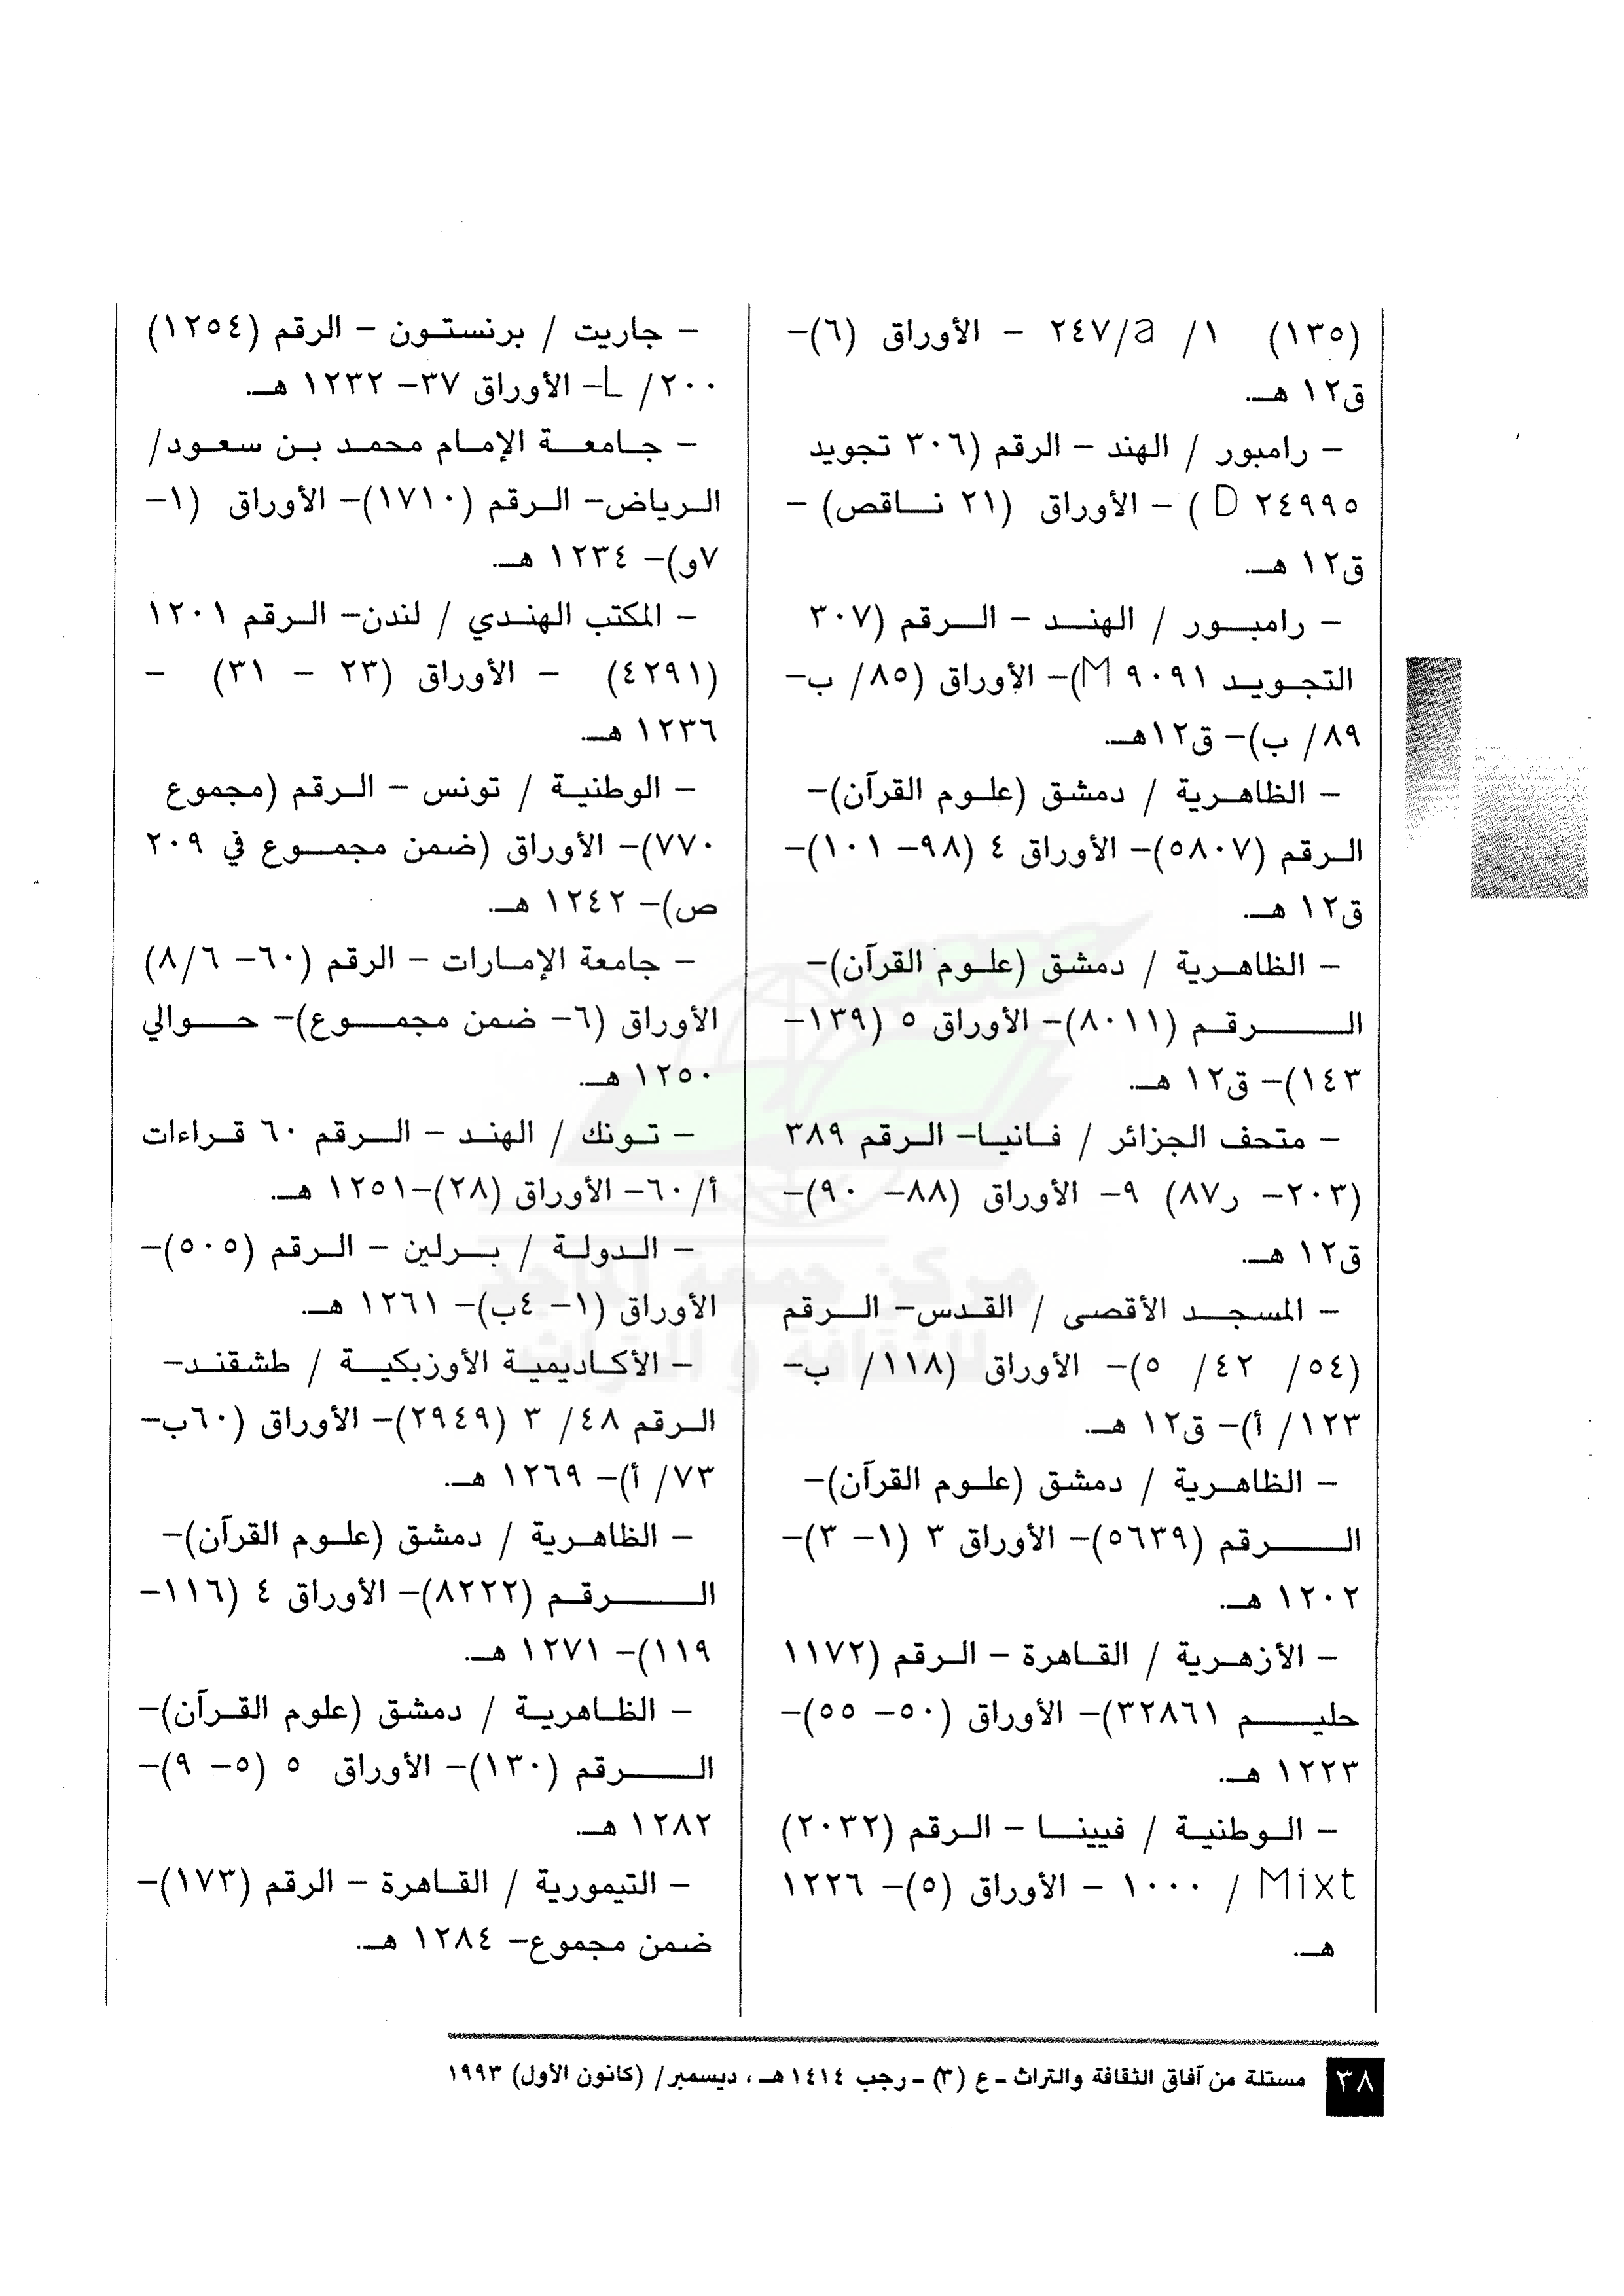 (١٣٥) ١/ ٢٤٧/a - الأوراق (٦)-
ق١٢ هـ.
- رامبور / الهند - الرقم (٣٠٦ تجويد
٢٤٩٩٥ D ) - الأوراق (٢١ ناقص) -
ق١٢ هـ.
- رامبور / الهند - الرقم (٣٠٧
التجويد ٩٠٩١ M)- الأوراق (٨٥/ ب-
٨٩/ ب)- ق١٢هـ.
- الظاهرية / دمشق (علوم القرآن)-
الرقم (٥٨٠٧)- الأوراق ٤ (٩٨- ١٠١)-
ق١٢ هـ.
- الظاهرية / دمشق (علوم القرآن)-
الرقم (٨٠١١)- الأوراق ٥ (١٣٩-
١٤٣)- ق١٢ هـ.
- متحف الجزائر / فانيا- الرقم ٣٨٩
(٢٠٣- ر٨٧) ٩- الأوراق (٨٨- ٩٠)-
ق١٢ هـ.
- المسجد الأقصى / القدس- الرقم
(٥٤/ ٤٢/ ٥)- الأوراق (١١٨/ ب-
١٢٣/ أ)- ق١٢ هـ.
- الظاهرية / دمشق (علوم القرآن)-
الرقم (٥٦٣٩)- الأوراق ٣ (١- ٣)-
١٢٠٢ هـ.
- الأزهرية / القاهرة - الرقم (١١٧٢
حليم ٣٢٨٦١)- الأوراق (٥٠- ٥٥)-
١٢٢٣ هـ.
- الوطنية / فيينا - الرقم (٢٠٣٢)
Mixt / ١٠٠٠ - الأوراق (٥)- ١٢٢٦
هـ.
- جاريت / برنستون - الرقم (١٢٥٤)
٢٠٠/ L- الأوراق ٣٧- ١٢٣٢ هـ.
- جامعة الإمام محمد بن سعود/
الرياض- الرقم (١٧١٠)- الأوراق (١-
٧و)- ١٢٣٤ هـ.
- المكتب الهندي / لندن- الرقم ١٢٠١
(٤٢٩١) - الأوراق (٢٣ - ٣١) -
١٢٣٦ هـ.
- الوطنية / تونس - الرقم (مجموع
٧٧٠)- الأوراق (ضمن مجموع في ٢٠٩
ص)- ١٢٤٢ هـ.
- جامعة الإمارات - الرقم (٦٠- ٨/٦)
الأوراق (٦- ضمن مجموع)- حوالي
١٢٥٠ هـ.
- تونك / الهند - الرقم ٦٠ قراءات
أ/ ٦٠- الأوراق (٢٨)-١٢٥١ هـ.
- الدولة / برلين - الرقم (٥٠٥)-
الأوراق (١- ٤ب)- ١٢٦١ هـ.
- الأكاديمية الأوزبكية / طشقند-
الرقم ٤٨/ ٣ (٢٩٤٩)- الأوراق (٦٠ب-
٧٣/ أ)- ١٢٦٩ هـ.
- الظاهرية / دمشق (علوم القرآن)-
الرقم (٨٢٢٢)- الأوراق ٤ (١١٦-
١١٩)- ١٢٧١ هـ.
- الظاهرية / دمشق (علوم القرآن)-
الرقم (١٣٠)- الأوراق ٥ (٥- ٩)-
١٢٨٢ هـ.
- التيمورية / القاهرة - الرقم (١٧٣)-
ضمن مجموع- ١٢٨٤ هـ.
مركز جمعة الماجد
للثقافة و التراث
٣٨ مستلة من آفاق الثقافة والتراث - ع (٣) - رجب ١٤١٤ هـ، ديسمبر/ (كانون الأول) ١٩٩٣